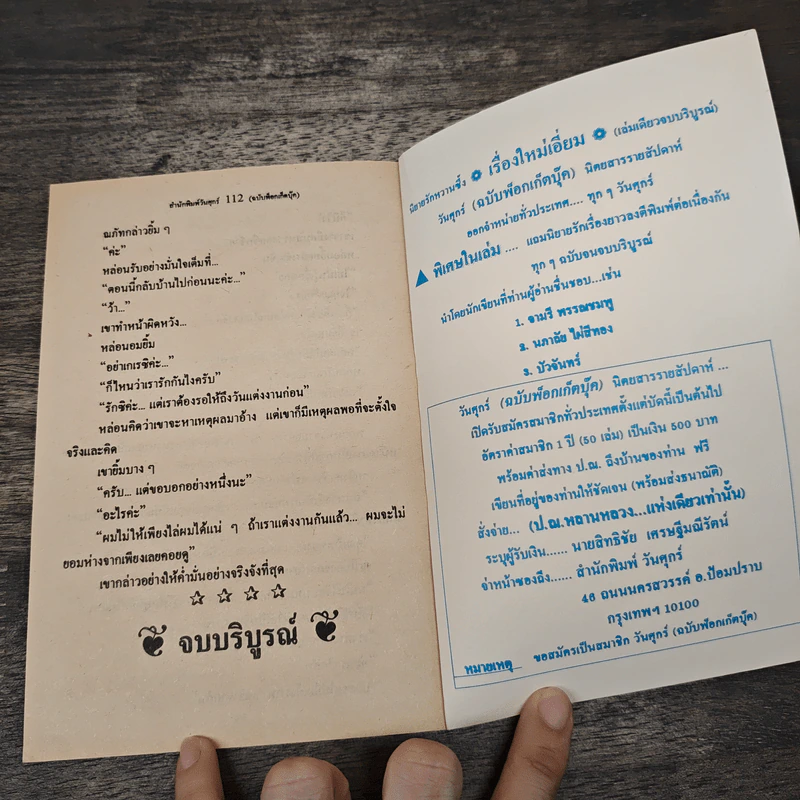 สำนักพิมพ์วันศุกร์ 112 (ฉบับพ็อกเก็ตบุ๊ค)
ณภัทกล่าวยิ้ม ๆ
“ค่ะ”
หล่อนรับอย่างมั่นใจเต็มที่...
“ตอนนี้กลับบ้านไปก่อนนะค่ะ...”
“ว้า...”
เขาทำหน้าผิดหวัง...
หล่อนอมยิ้ม
“อย่าเกเรซิค่ะ...”
“ก็ไหนว่าเรารักกันไงครับ”
“รักซิค่ะ... แต่เราต้องรอให้ถึงวันแต่งงานก่อน”
หล่อนคิดว่าเขาจะหาเหตุผลมาอ้าง แต่เขาก็มีเหตุผลพอที่จะตั้งใจ
จริงและคิด
เขายิ้มบาง ๆ
“ครับ... แต่ขอบอกอย่างหนึ่งนะ”
“อะไรค่ะ”
“ผมไม่ให้เพียงไล่ผมได้แน่ ๆ ถ้าเราแต่งงานกันแล้ว... ผมจะไม่
ยอมห่างจากเพียงเลยคอยดู”
เขากล่าวอย่างให้คำมั่นอย่างจริงจังที่สุด
จบบริบูรณ์
นิยายรักหวานซึ้ง เรื่องใหม่เอี่ยม (เล่มเดียวจบบริบูรณ์)
วันศุกร์ (ฉบับพ็อกเก็ตบุ๊ค) นิตยสารรายสัปดาห์
ออกจำหน่ายทั่วประเทศ.... ทุก ๆ วันศุกร์
พิเศษในเล่ม .... แถมนิยายรักเรื่องยาวลงตีพิมพ์ต่อเนื่องกัน
ทุก ๆ ฉบับจนจบบริบูรณ์
นำโดยนักเขียนที่ท่านผู้อ่านชื่นชอบ...เช่น
1. จามรี พรรณชมพู
2. นภาลัย ไผ่สีทอง
3. บัวจันทร์
วันศุกร์ (ฉบับพ็อกเก็ตบุ๊ค) นิตยสารรายสัปดาห์ ...
เปิดรับสมัครสมาชิกทั่วประเทศตั้งแต่บัดนี้เป็นต้นไป
อัตราค่าสมาชิก 1 ปี (50 เล่ม) เป็นเงิน 500 บาท
พร้อมค่าส่งทาง ป.ณ. ถึงบ้านของท่าน ฟรี
เขียนที่อยู่ของท่านให้ชัดเจน (พร้อมส่งธนาณัติ)
สั่งจ่าย... (ป.ณ.หลานหลวง...แห่งเดียวเท่านั้น)
ระบุผู้รับเงิน...... นายสิทธิชัย เศรษฐีมณีรัตน์
จ่าหน้าซองถึง...... สำนักพิมพ์ วันศุกร์
46 ถนนนครสวรรค์ อ.ป้อมปราบ
กรุงเทพฯ 10100
หมายเหตุ ขอสมัครเป็นสมาชิก วันศุกร์ (ฉบับพ็อกเก็ตบุ๊ค)